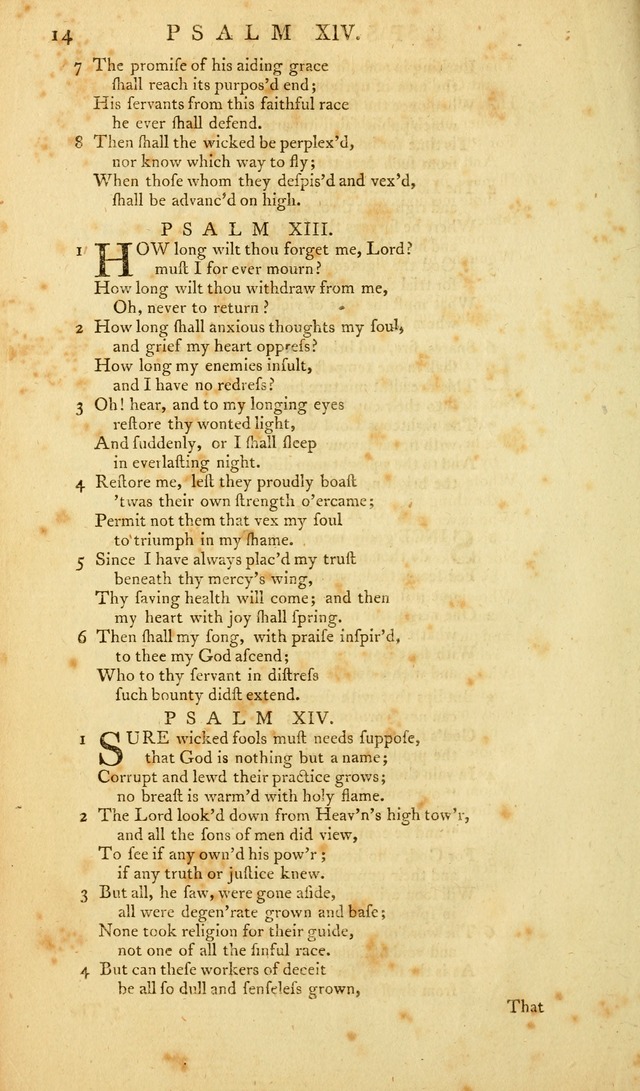 14 PSALM XIV.
7 The promiſe of his aiding grace
ſhall reach its purpos'd end;
His ſervants from this faithful race
he ever ſhall defend.
8 Then ſhall the wicked be perplex'd,
nor know which way to fly;
When thoſe whom they deſpis'd and vex'd,
ſhall be advanc'd on high.
PSALM XIII.
1 HOW long wilt thou forget me, Lord?
muſt I for ever mourn?
How long wilt thou withdraw from me,
Oh, never to return?
2 How long ſhall anxious thoughts my ſoul,
and grief my heart oppreſs?
How long my enemies inſult,
and I have no redreſs?
3 Oh! hear, and to my longing eyes
reſtore thy wonted light,
And ſuddenly, or I ſhall ſleep
in everlaſting night.
4 Reſtore me, leſt they proudly boaſt
'twas their own ſtrength o'ercame;
Permit not them that vex my ſoul
to triumph in my ſhame.
5 Since I have always plac'd my truſt
beneath thy mercy's wing,
Thy ſaving health will come; and then
my heart with joy ſhall ſpring.
6 Then ſhall my ſong, with praiſe inſpir'd,
to thee my God aſcend;
Who to thy ſervant in diſtreſs
ſuch bounty didſt extend.
PSALM XIV.
1 SURE wicked fools muſt needs ſuppoſe,
that God is nothing but a name;
Corrupt and lewd their practice grows;
no breaſt is warm'd with holy flame.
2 The Lord look'd down from Heav'n's high tow'r,
and all the ſons of men did view,
To ſee if any own'd his pow'r;
if any truth or juſtice knew.
3 But all, he ſaw, were gone aſide,
all were degen'rate grown and baſe;
None took religion for their guide,
not one of all the ſinful race.
4 But can theſe workers of deceit
be all ſo dull and ſenſeleſs grown,
That